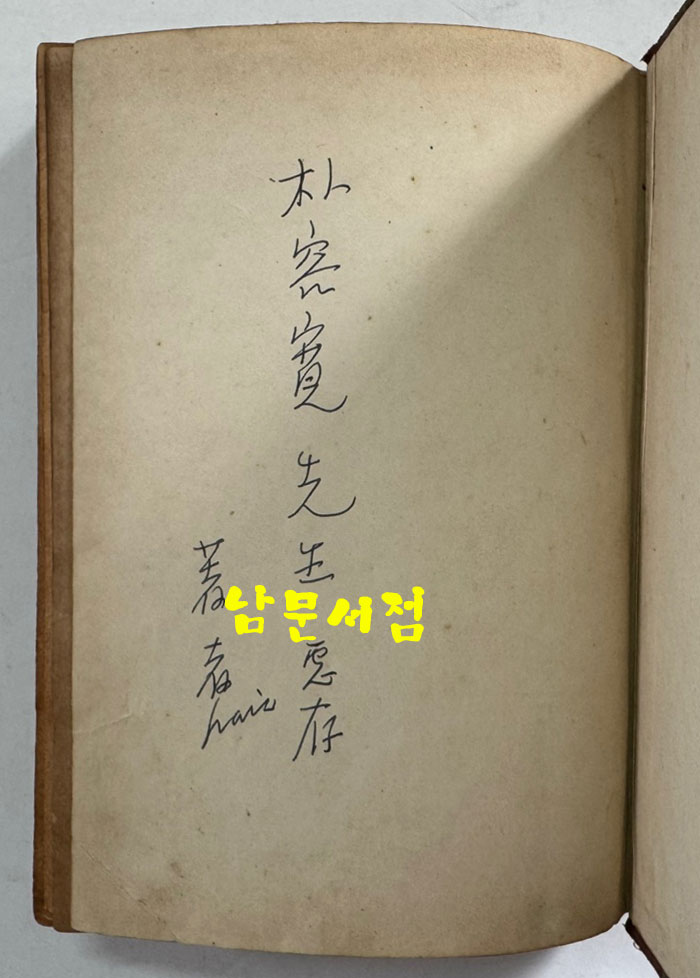 朴容寬先生惠存
著者
남문서점